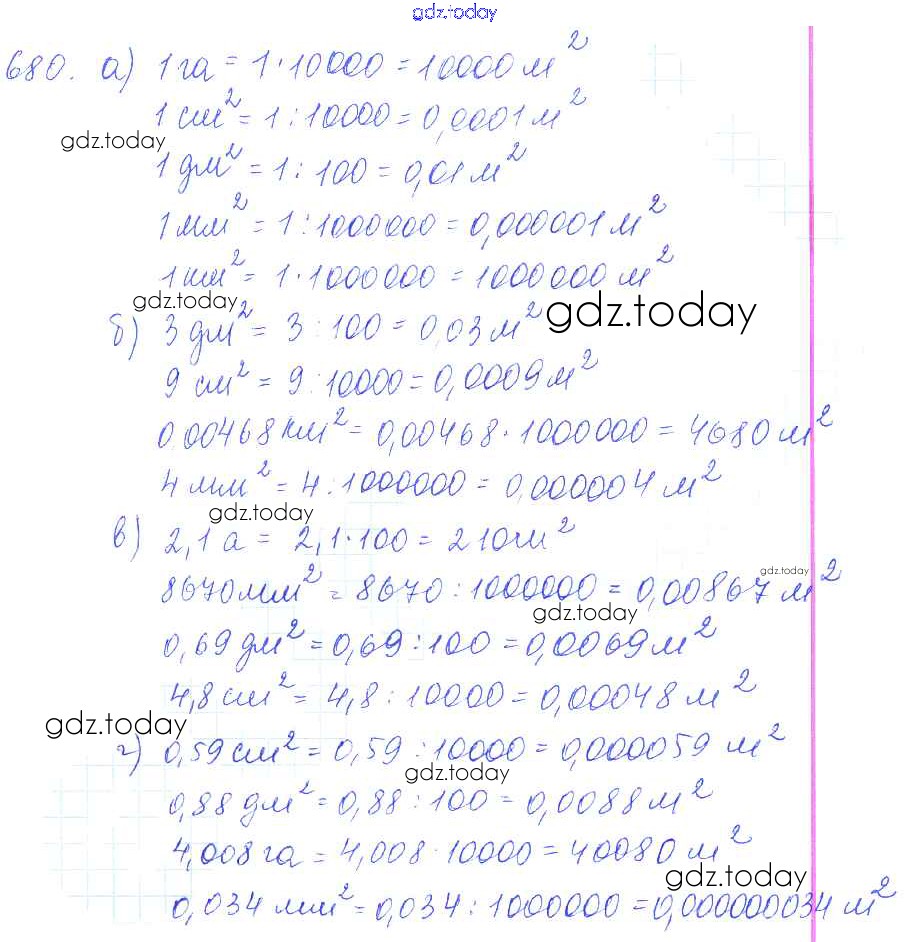 gdz.today
680. а) 1 га = 1·10000 = 10000 м²
1 см² = 1 : 10000 = 0,0001 м²
gdz.today
1 дм² = 1 : 100 = 0,01 м²
1 мм² = 1 : 1000000 = 0,000001 м²
1 км² = 1·1000000 = 1000000 м²
gdz.today
gdz.today
б) 3 дм² = 3 : 100 = 0,03 м²
9 см² = 9 : 10000 = 0,0009 м²
0,00468 км² = 0,00468·1000000 = 4680 м²
4 мм² = 4 : 1000000 = 0,000004 м²
gdz.today
в) 2,1 а = 2,1·100 = 210 м²
gdz.today
8670 мм² = 8670 : 1000000 = 0,00867 м²
gdz.today
0,69 дм² = 0,69 : 100 = 0,0069 м²
4,8 см² = 4,8 : 10000 = 0,00048 м²
gdz.today
г) 0,59 см² = 0,59 : 10000 = 0,000059 м²
gdz.today
0,88 дм² = 0,88 : 100 = 0,0088 м²
4,008 га = 4,008·10000 = 40080 м²
gdz.today
0,034 мм² = 0,034 : 1000000 = 0,000000034 м²